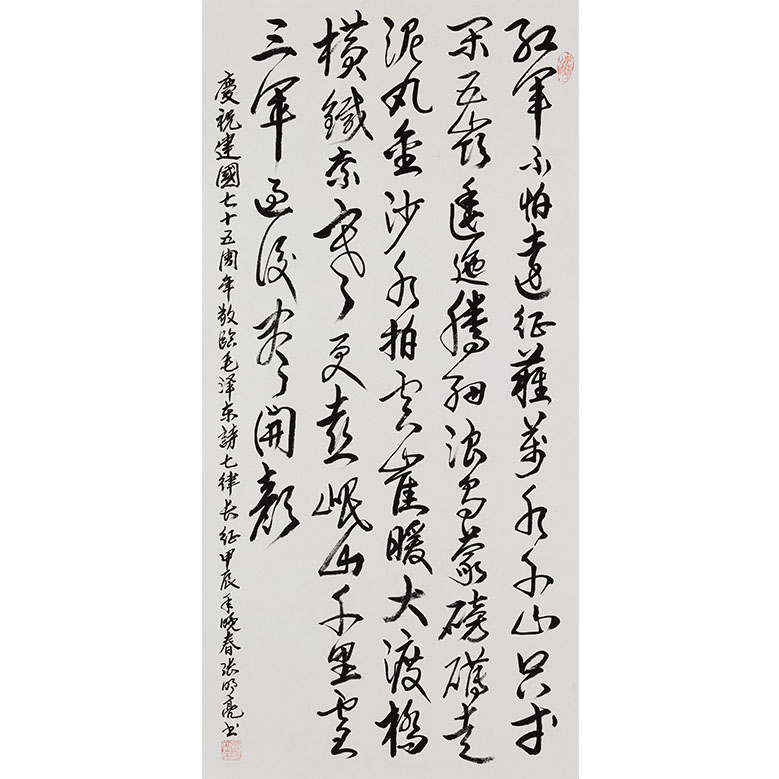 红军不怕遠征難萬水千山只等
閑五嶺逶迤腾细浪乌蒙磅礴走
泥丸金沙水拍雲崖暖大渡橋
横鐵索寒更喜岷山千里雪
三军過後尽開颜
慶祝建國七十五周年敬臨毛泽东詩七律长征甲辰年晚春张明亮书